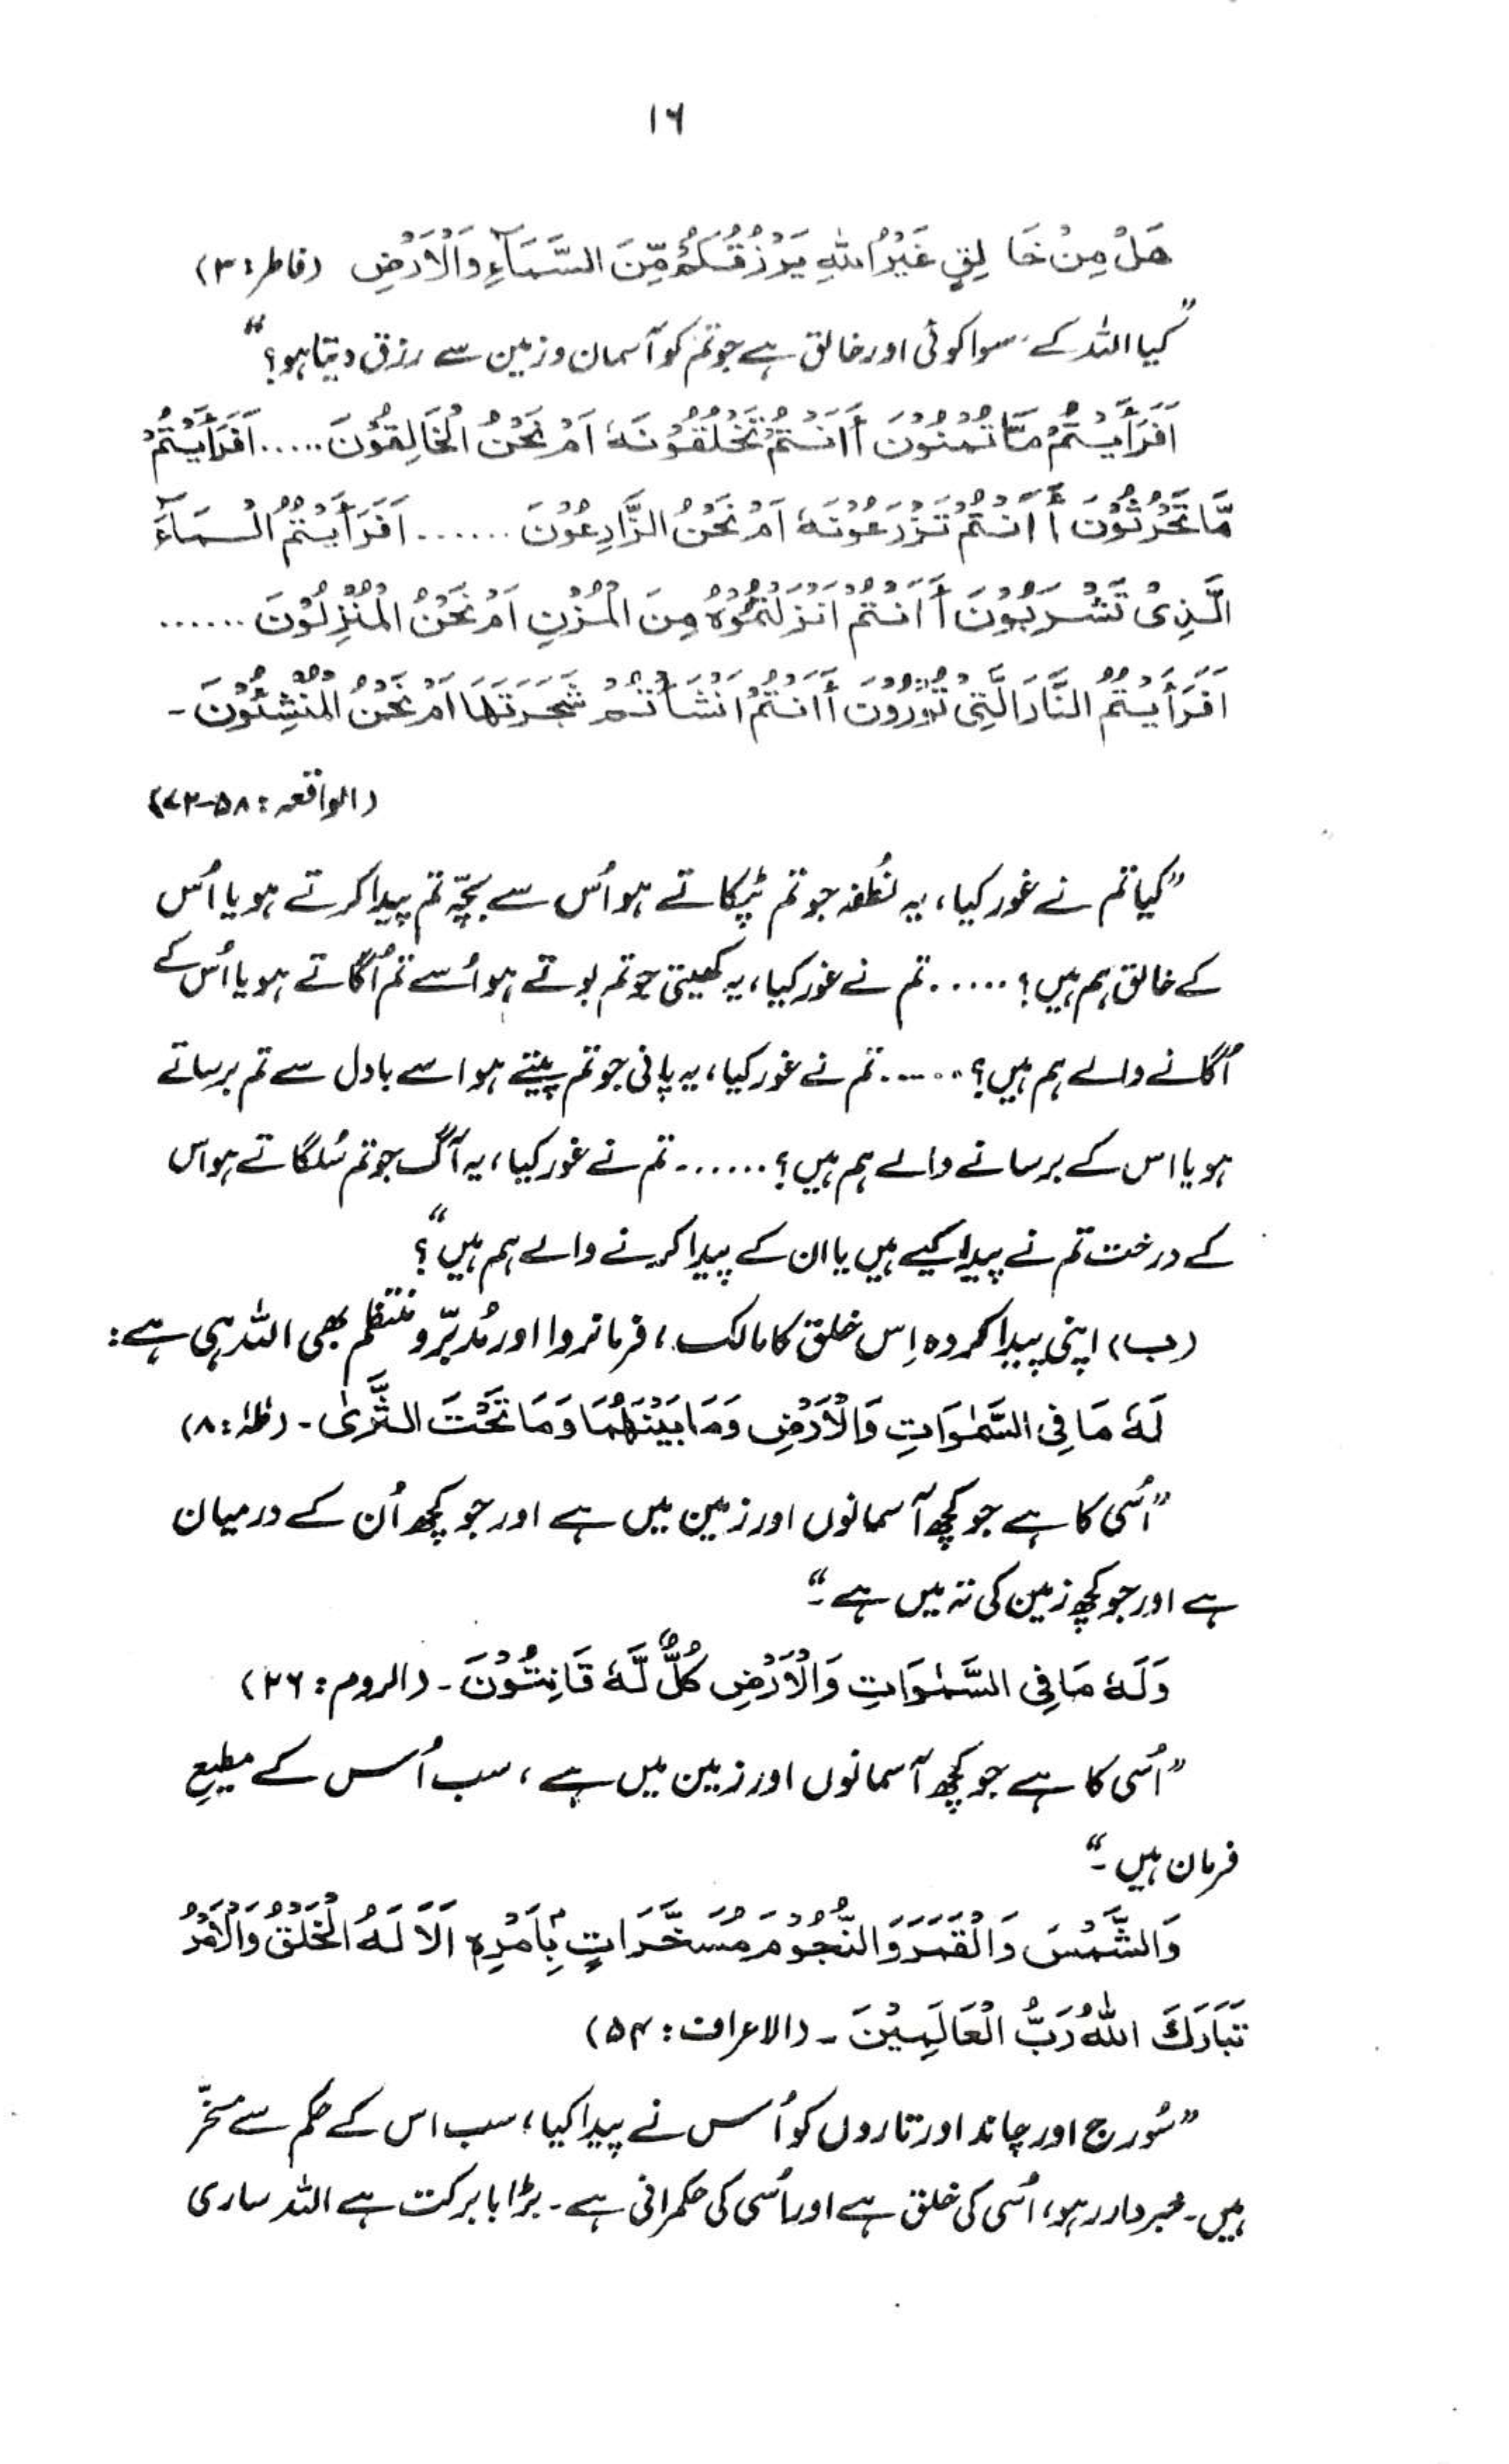 ۱۶
هَلْ مِنْ خَالِقٍ غَيْرُ اللهِ يَرْزُقُكُمْ مِّنَ السَّمَآءِ وَالْاَرْضِ (فاطر: ۳)
”کیا اللہ کے سوا کوئی اور خالق ہے جو تم کو آسمان و زمین سے رزق دیتا ہو؟“
اَفَرَأَيْتُمْ مَّا تُمْنُوْنَ أَاَنْتُمْ تَخْلُقُوْنَهٗ اَمْ نَحْنُ الْخَالِقُوْنَ ..... اَفَرَأَيْتُمْ
مَّا تَحْرُثُوْنَ أَاَنْتُمْ تَزْرَعُوْنَهٗ اَمْ نَحْنُ الزَّارِعُوْنَ ...... اَفَرَأَيْتُمُ الْمَآءَ
الَّذِیْ تَشْرَبُوْنَ أَاَنْتُمْ اَنْزَلْتُمُوْهُ مِنَ الْمُزْنِ اَمْ نَحْنُ الْمُنْزِلُوْنَ ......
اَفَرَأَيْتُمُ النَّارَ الَّتِیْ تُوْرُوْنَ أَاَنْتُمْ اَنْشَأْتُمْ شَجَرَتَهَا اَمْ نَحْنُ الْمُنْشِئُوْنَ۔
(الواقعہ: ۵۸-۷۲)
”کیا تم نے غور کیا، یہ نُطفہ جو تم ٹپکاتے ہو اُس سے بچّہ تم پیدا کرتے ہو یا اُس
کے خالق ہم ہیں؟ ...... تم نے غور کیا، یہ کھیتی جو تم بوتے ہو اُسے تم اُگاتے ہو یا اُس کے
اُگانے والے ہم ہیں؟ ...... تم نے غور کیا، یہ پانی جو تم پیتے ہو اسے بادل سے تم برساتے
ہو یا اس کے برسانے والے ہم ہیں؟ ....... تم نے غور کیا، یہ آگ جو تم سُلگاتے ہو اس
کے درخت تم نے پیدا کیے ہیں یا ان کے پیدا کرنے والے ہم ہیں“؟
(ب) اپنی پیدا کردہ اِس خلق کا مالک، فرمانروا اور مُدبّر و منتظم بھی اللہ ہی ہے:
لَهٗ مَا فِی السَّمٰوَاتِ وَالْاَرْضِ وَمَا بَيْنَهُمَا وَمَا تَحْتَ الثَّرٰی۔ (طٰہٰ: ۸)
”اُسی کا ہے جو کچھ آسمانوں اور زمین میں ہے اور جو کچھ اُن کے درمیان
ہے اور جو کچھ زمین کی تہ میں ہے۔“
وَلَهٗ مَا فِی السَّمٰوَاتِ وَالْاَرْضِ كُلٌّ لَّهٗ قَانِتُوْنَ۔ (الروم: ۲۶)
”اُسی کا ہے جو کچھ آسمانوں اور زمین میں ہے، سب اُس کے مطیعِ
فرمان ہیں۔“
وَالشَّمْسَ وَالْقَمَرَ وَالنُّجُوْمَ مُسَخَّرَاتٍ بِاَمْرِهٖ اَلَا لَهُ الْخَلْقُ وَالْاَمْرُ
تَبَارَكَ اللهُ رَبُّ الْعَالَمِيْنَ۔ (الاعراف: ۵۴)
”سُورج اور چاند اور تاروں کو اُس نے پیدا کیا، سب اس کے حکم سے مسخّر
ہیں۔ خبردار رہو، اُسی کی خلق ہے اور اُسی کی حکمرانی ہے۔ بڑا با برکت ہے اللہ ساری